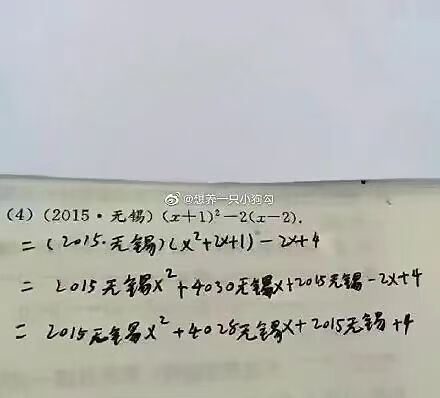 @想养一只小狗勾
(4) (2015·无锡) (x+1)²-2(x-2).
= (2015·无锡)(x²+2x+1)-2x+4
= 2015无锡x²+4030无锡x+2015无锡-2x+4
= 2015无锡x²+4028无锡x+2015无锡+4